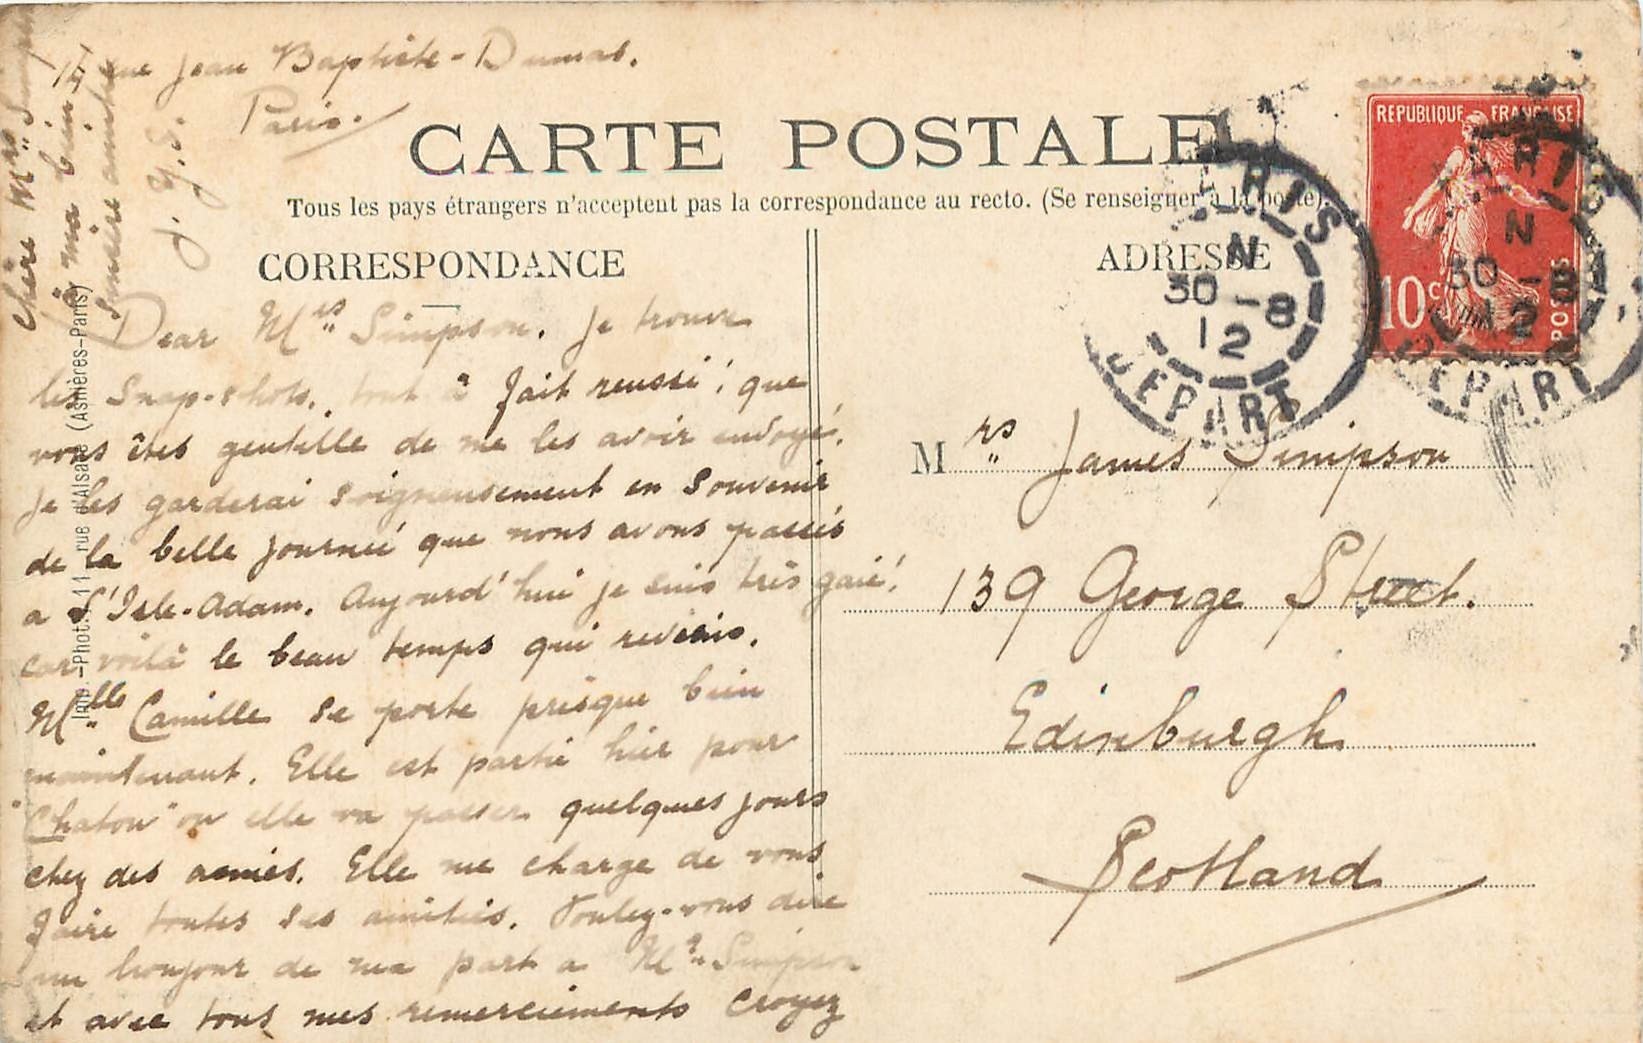 14 rue Jean Baptiste-Dumas.
Paris.
CARTE POSTALE
Tous les pays étrangers n'acceptent pas la correspondance au recto. (Se renseigner à la poste).
CORRESPONDANCE
ADRESSE
REPUBLIQUE FRANÇAISE
10c
POSTES
PARIS
N
30 - 8
12
DEPART
PARIS
N
30 - 8
12
DEPART
Dear Mrs Simpson. Je trouve
les Snap-shots. tout à fait reussi! que
vous êtes gentille de me les avoir envoyé.
Je les garderai soigneusement en souvenir
de la belle journeé que nous avons passés
a L'Isle-Adam. Aujourd'hui je suis très gaie!
car voilà le beau temps qui reviens.
Mlle Camille se porte presque bien
maintenant. Elle est partie hier pour
"Chatou" ou elle va passer quelques jours
chez des amies. Elle me charge de vous
faire toutes ses amitiés. Voulez-vous dire
un bonjour de ma part a Mr Simpson
et avec tous mes remerciements croyez
Chère Mrs Simpson
à ma bien
sincère amitié
J. Y. S.
Mrs James Simpson
139 George Street.
Edinburgh
Scotland
Imp.-Phot. 11, rue d'Alsace (Asnières-Paris)